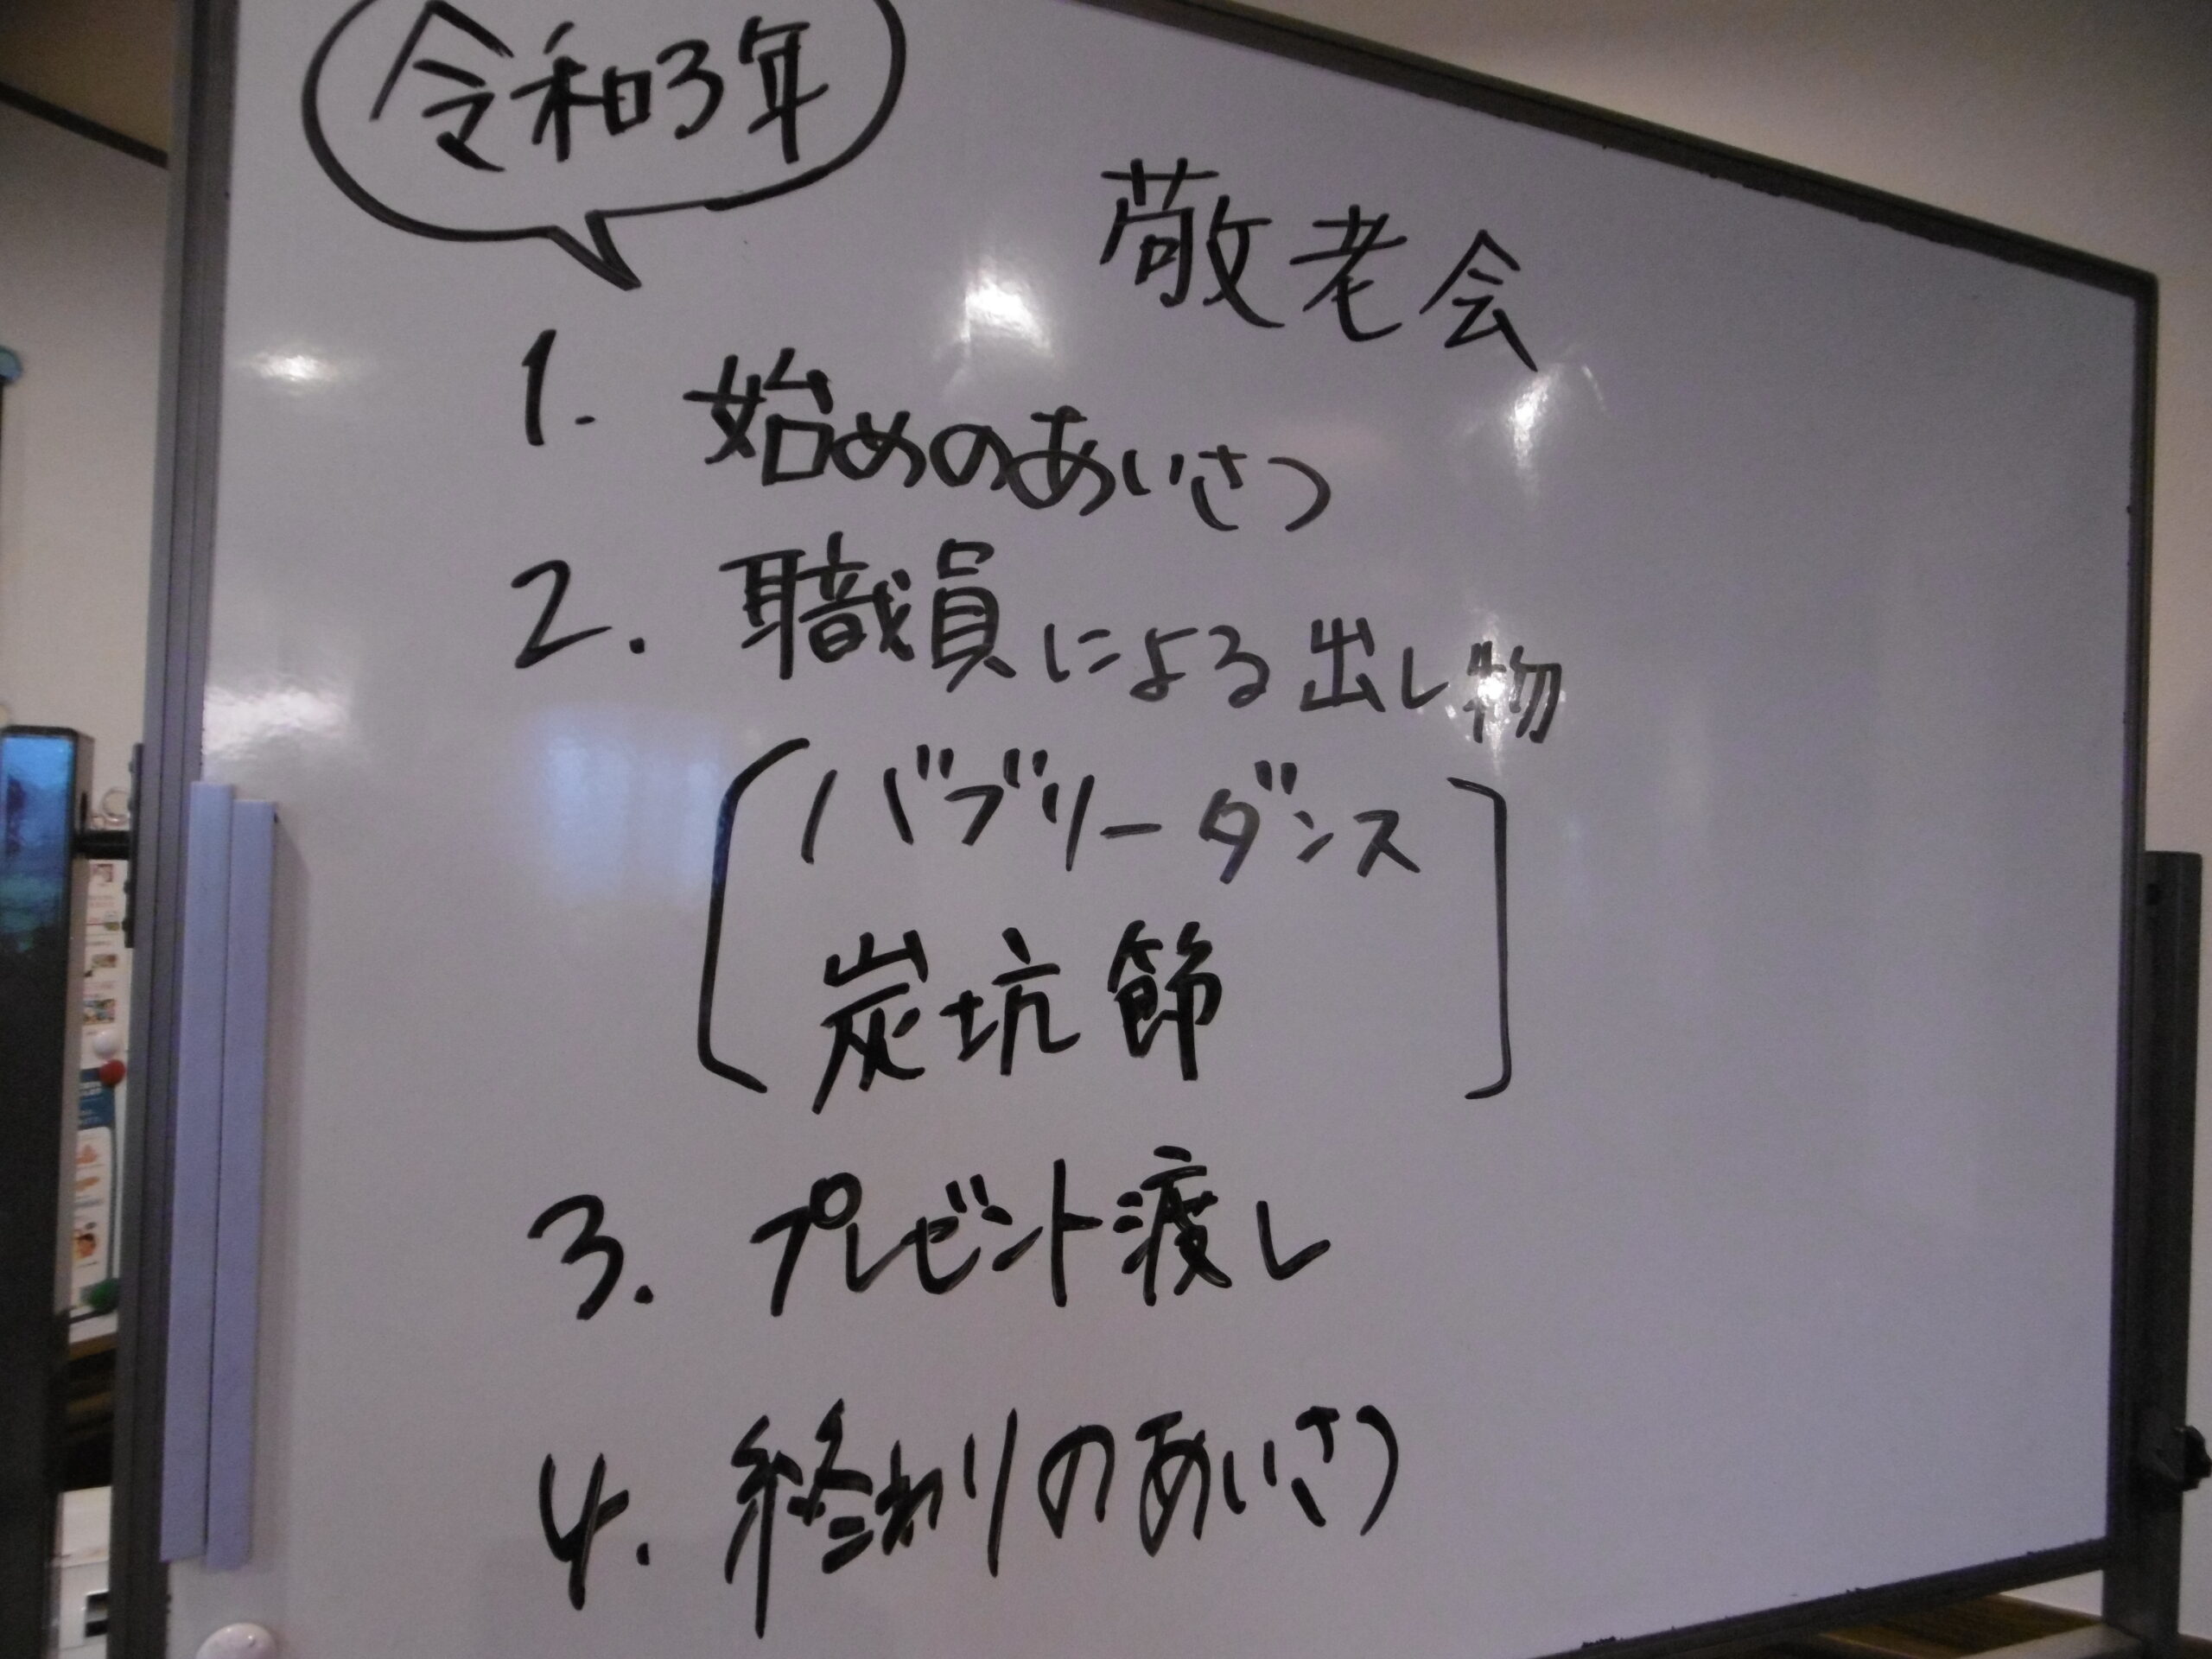 令和3年
敬老会
1. 始めのあいさつ
2. 職員による出し物
バブリーダンス
炭坑節
3. プレゼント渡し
4. 終わりのあいさつ